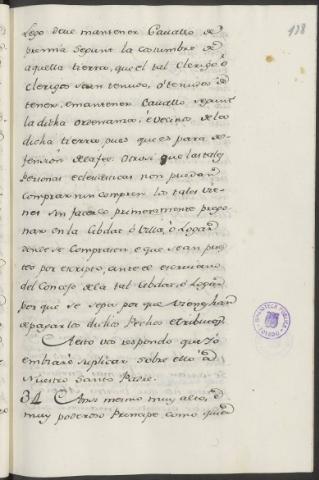 128
lego deue mantener Cauallo de
premia segunt la costumbre de
aquella tierra, que el tal Clerigo o
Clerigos sean tenudos, ó tenudas de
tener, e mantener Cauallo segunt
la dicha ordenanza, é Vecino de la
dicha tierra, pues que es para de-
fension de la fee. Otrosi que las tales
Personas eclesiasticas non puedan
comprar nin compren los tales vie-
nes sin facerlo primeramente prego-
nar en la Cibdat, ó Villa, ó Logar
donde se Compraren, e que sean pues-
tos por escripto, ante el escriuano
del Concejo de la tal Cibdat, ó Logar
por que se sepa por que
a pagar los dichos Pechos e tributos.
A esto vos respondo que Yó
embiaré suplicar sobre ello á
Nuestro Santo Padre.
34 Otrosi mesmo muy alto, é
muy poderoso Principe como quier
BIBLIOTECA PUBLICA
TOLEDO